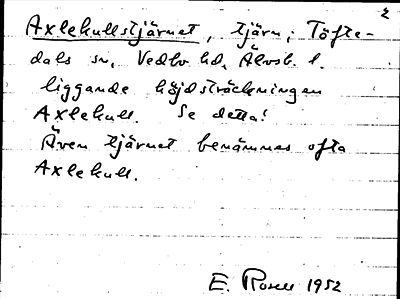 2
Axlekullstjärnet, tjärn; Töfte-
dals sn, Vedbo hd, Älvsb. l.
liggande höjdsträckningen
Axlekull. Se detta!
Även tjärnet benämnes ofta
Axlekull.
E. Rosell 1952